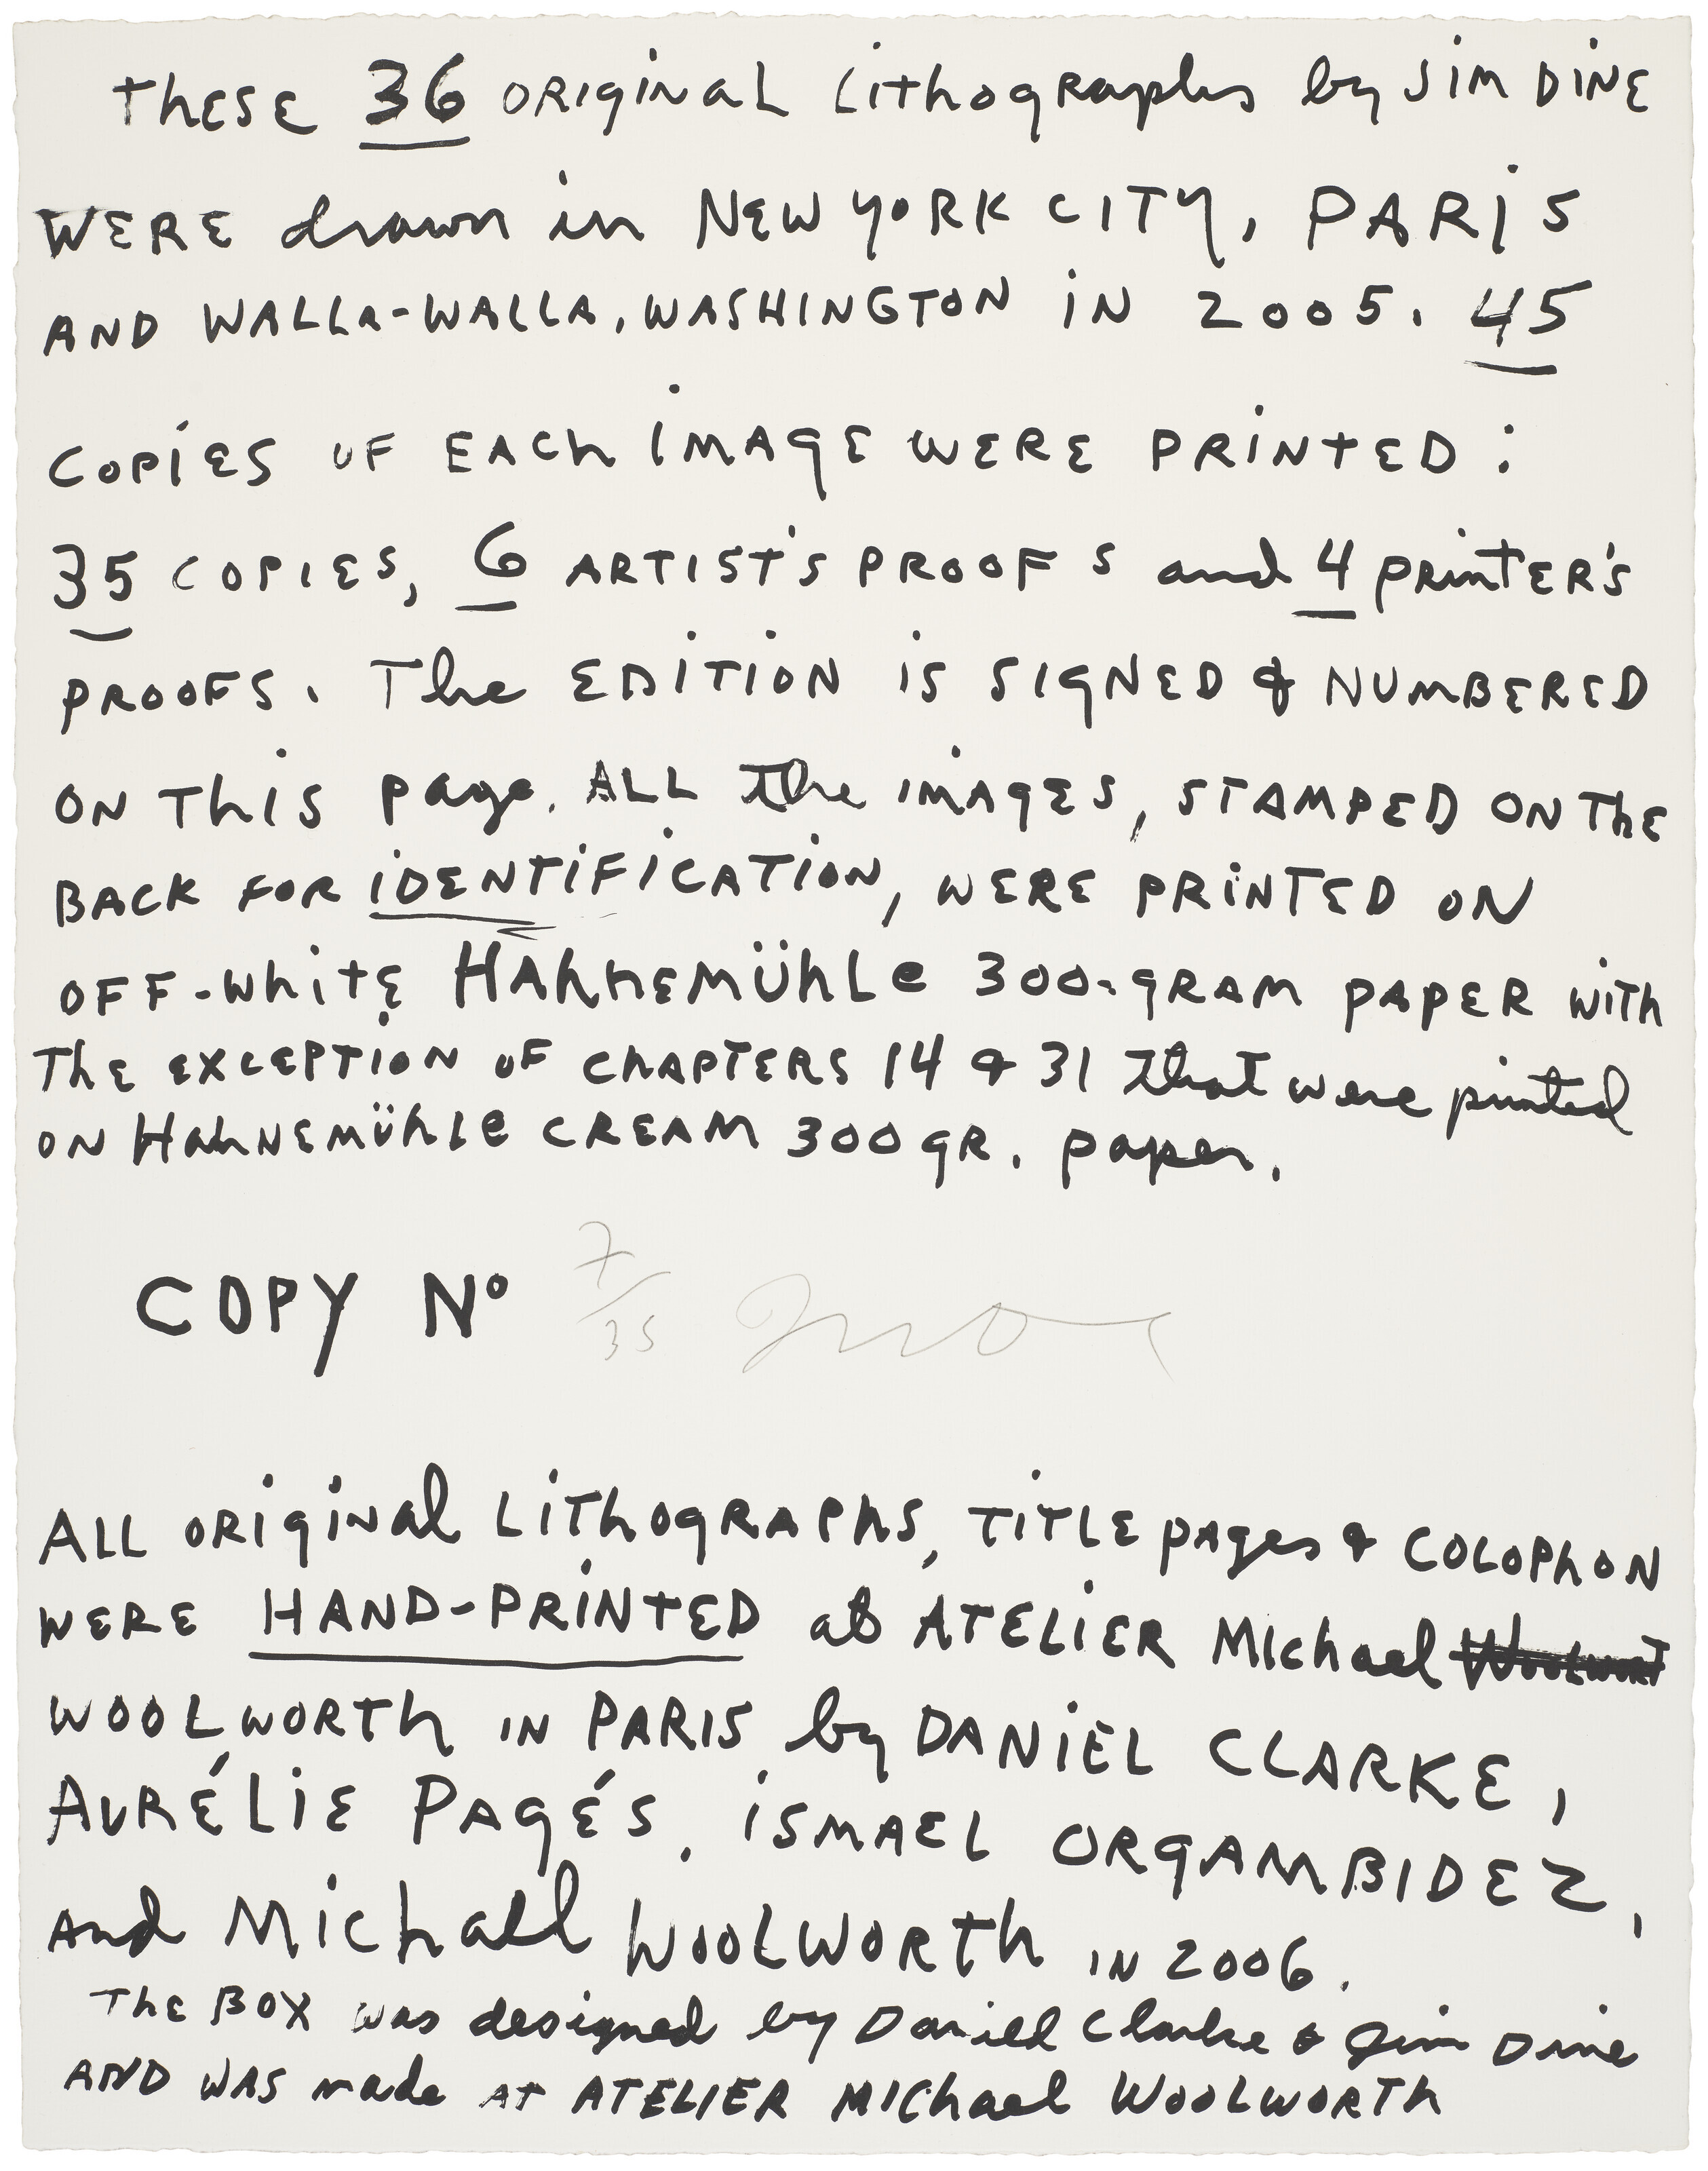 These 36 original Lithographs by Jim Dine
were drawn in New York City, Paris
and Walla-Walla, Washington in 2005. 45
copies of each image were printed:
35 copies, 6 artist's proofs and 4 printer's
proofs. The edition is signed & numbered
on this page. All the images, stamped on the
back for identification, were printed on
off-white Hahnemühle 300-gram paper with
the exception of chapters 14 & 31 that were printed
on Hahnemühle cream 300 gr. paper.
COPY No 7/35
All original Lithographs, title pages & colophon
were HAND-PRINTED at Atelier Michael Woolwort
Woolworth in Paris by Daniel Clarke,
Aurélie Pagés, Ismael Orgambidez,
and Michael Woolworth in 2006.
The Box was designed by Daniel Clarke & Jim Dine
and was made at Atelier Michael Woolworth